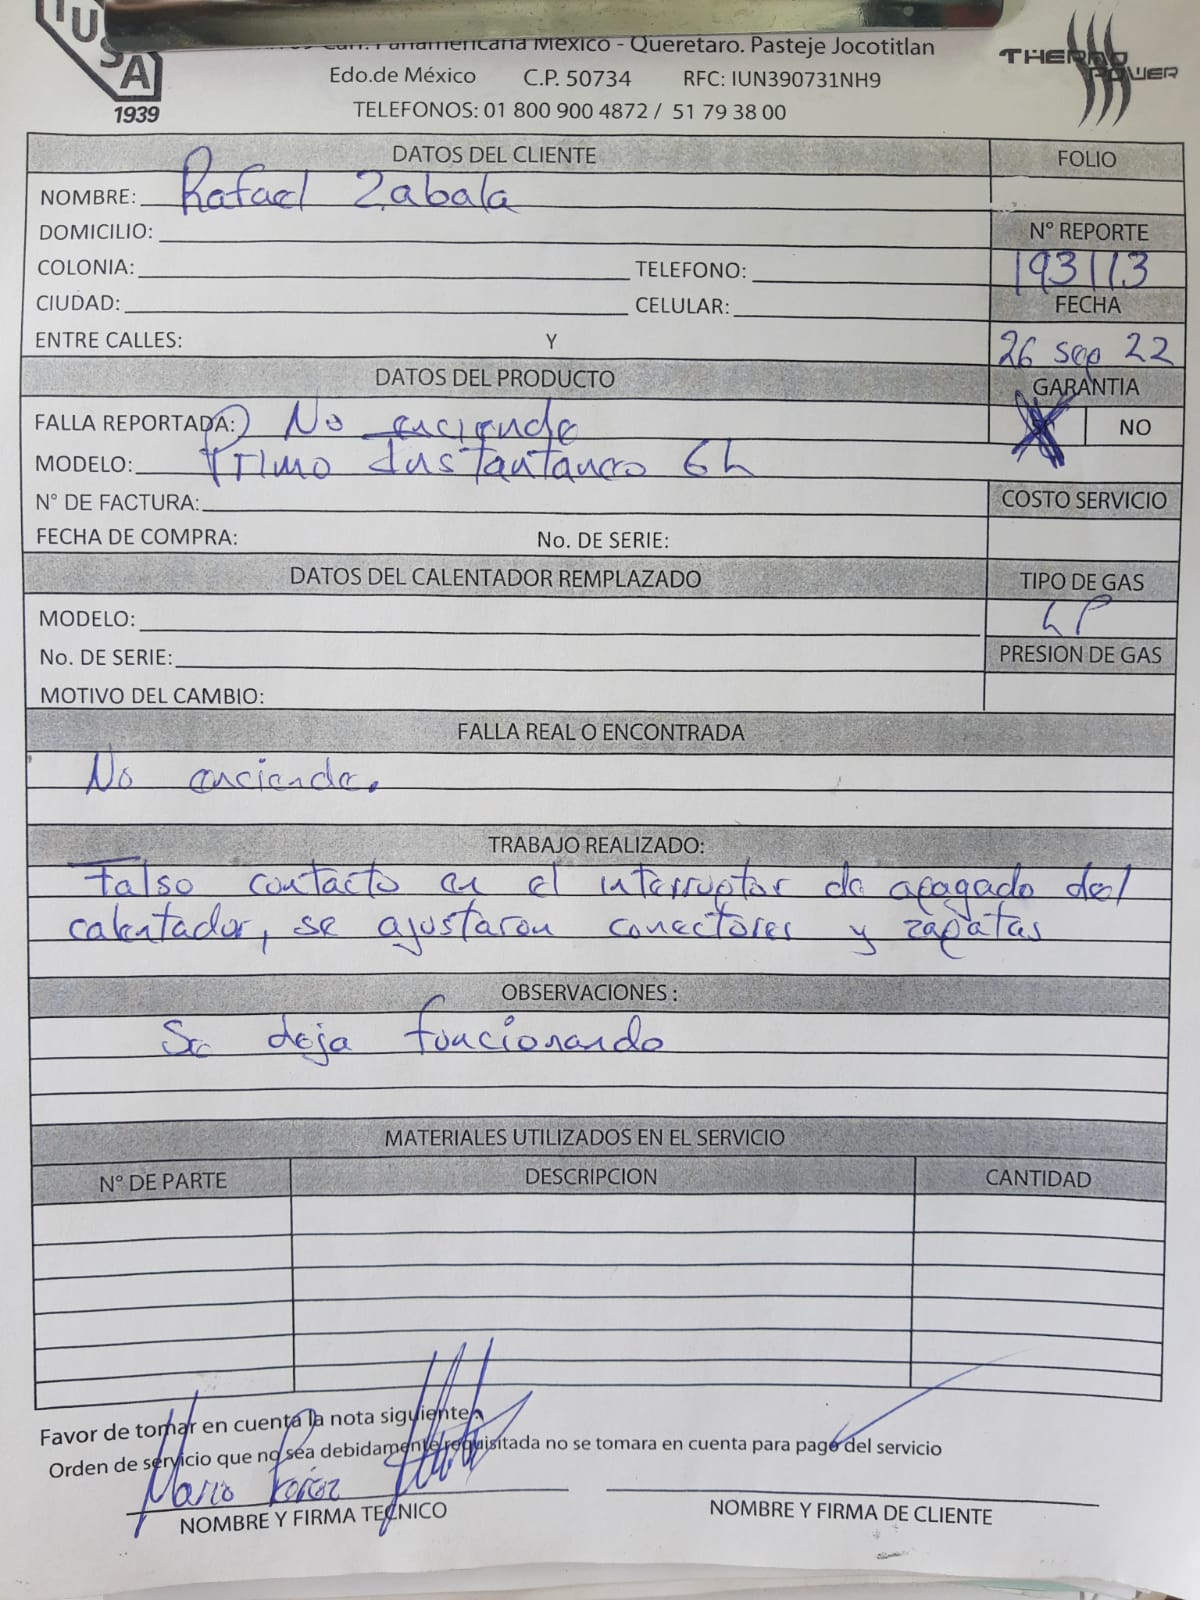 IUSA
1939
Panamericana México - Queretaro. Pasteje Jocotitlan
Edo.de México C.P. 50734 RFC: IUN390731NH9
TELEFONOS: 01 800 900 4872 / 51 79 38 00
THERMO POWER
DATOS DEL CLIENTE FOLIO
NOMBRE: Rafael Zabala
DOMICILIO: N° REPORTE
COLONIA: TELEFONO: 193113
CIUDAD: CELULAR: FECHA
ENTRE CALLES: Y 26 sep 22
DATOS DEL PRODUCTO GARANTIA
FALLA REPORTADA: No enciende NO
MODELO: Primo Instantaneo 6L
N° DE FACTURA: COSTO SERVICIO
FECHA DE COMPRA: No. DE SERIE:
DATOS DEL CALENTADOR REMPLAZADO TIPO DE GAS
MODELO: LP
No. DE SERIE: PRESION DE GAS
MOTIVO DEL CAMBIO:
FALLA REAL O ENCONTRADA
No enciende.
TRABAJO REALIZADO:
Falso contacto en el interruptor de apagado del
calentador, se ajustaron conectores y zapatas
OBSERVACIONES :
Se deja funcionando
MATERIALES UTILIZADOS EN EL SERVICIO
N° DE PARTE DESCRIPCION CANTIDAD
Favor de tomar en cuenta la nota siguiente
Orden de servicio que no sea debidamente requisitada no se tomara en cuenta para pago del servicio
Mario Perez
NOMBRE Y FIRMA TECNICO NOMBRE Y FIRMA DE CLIENTE